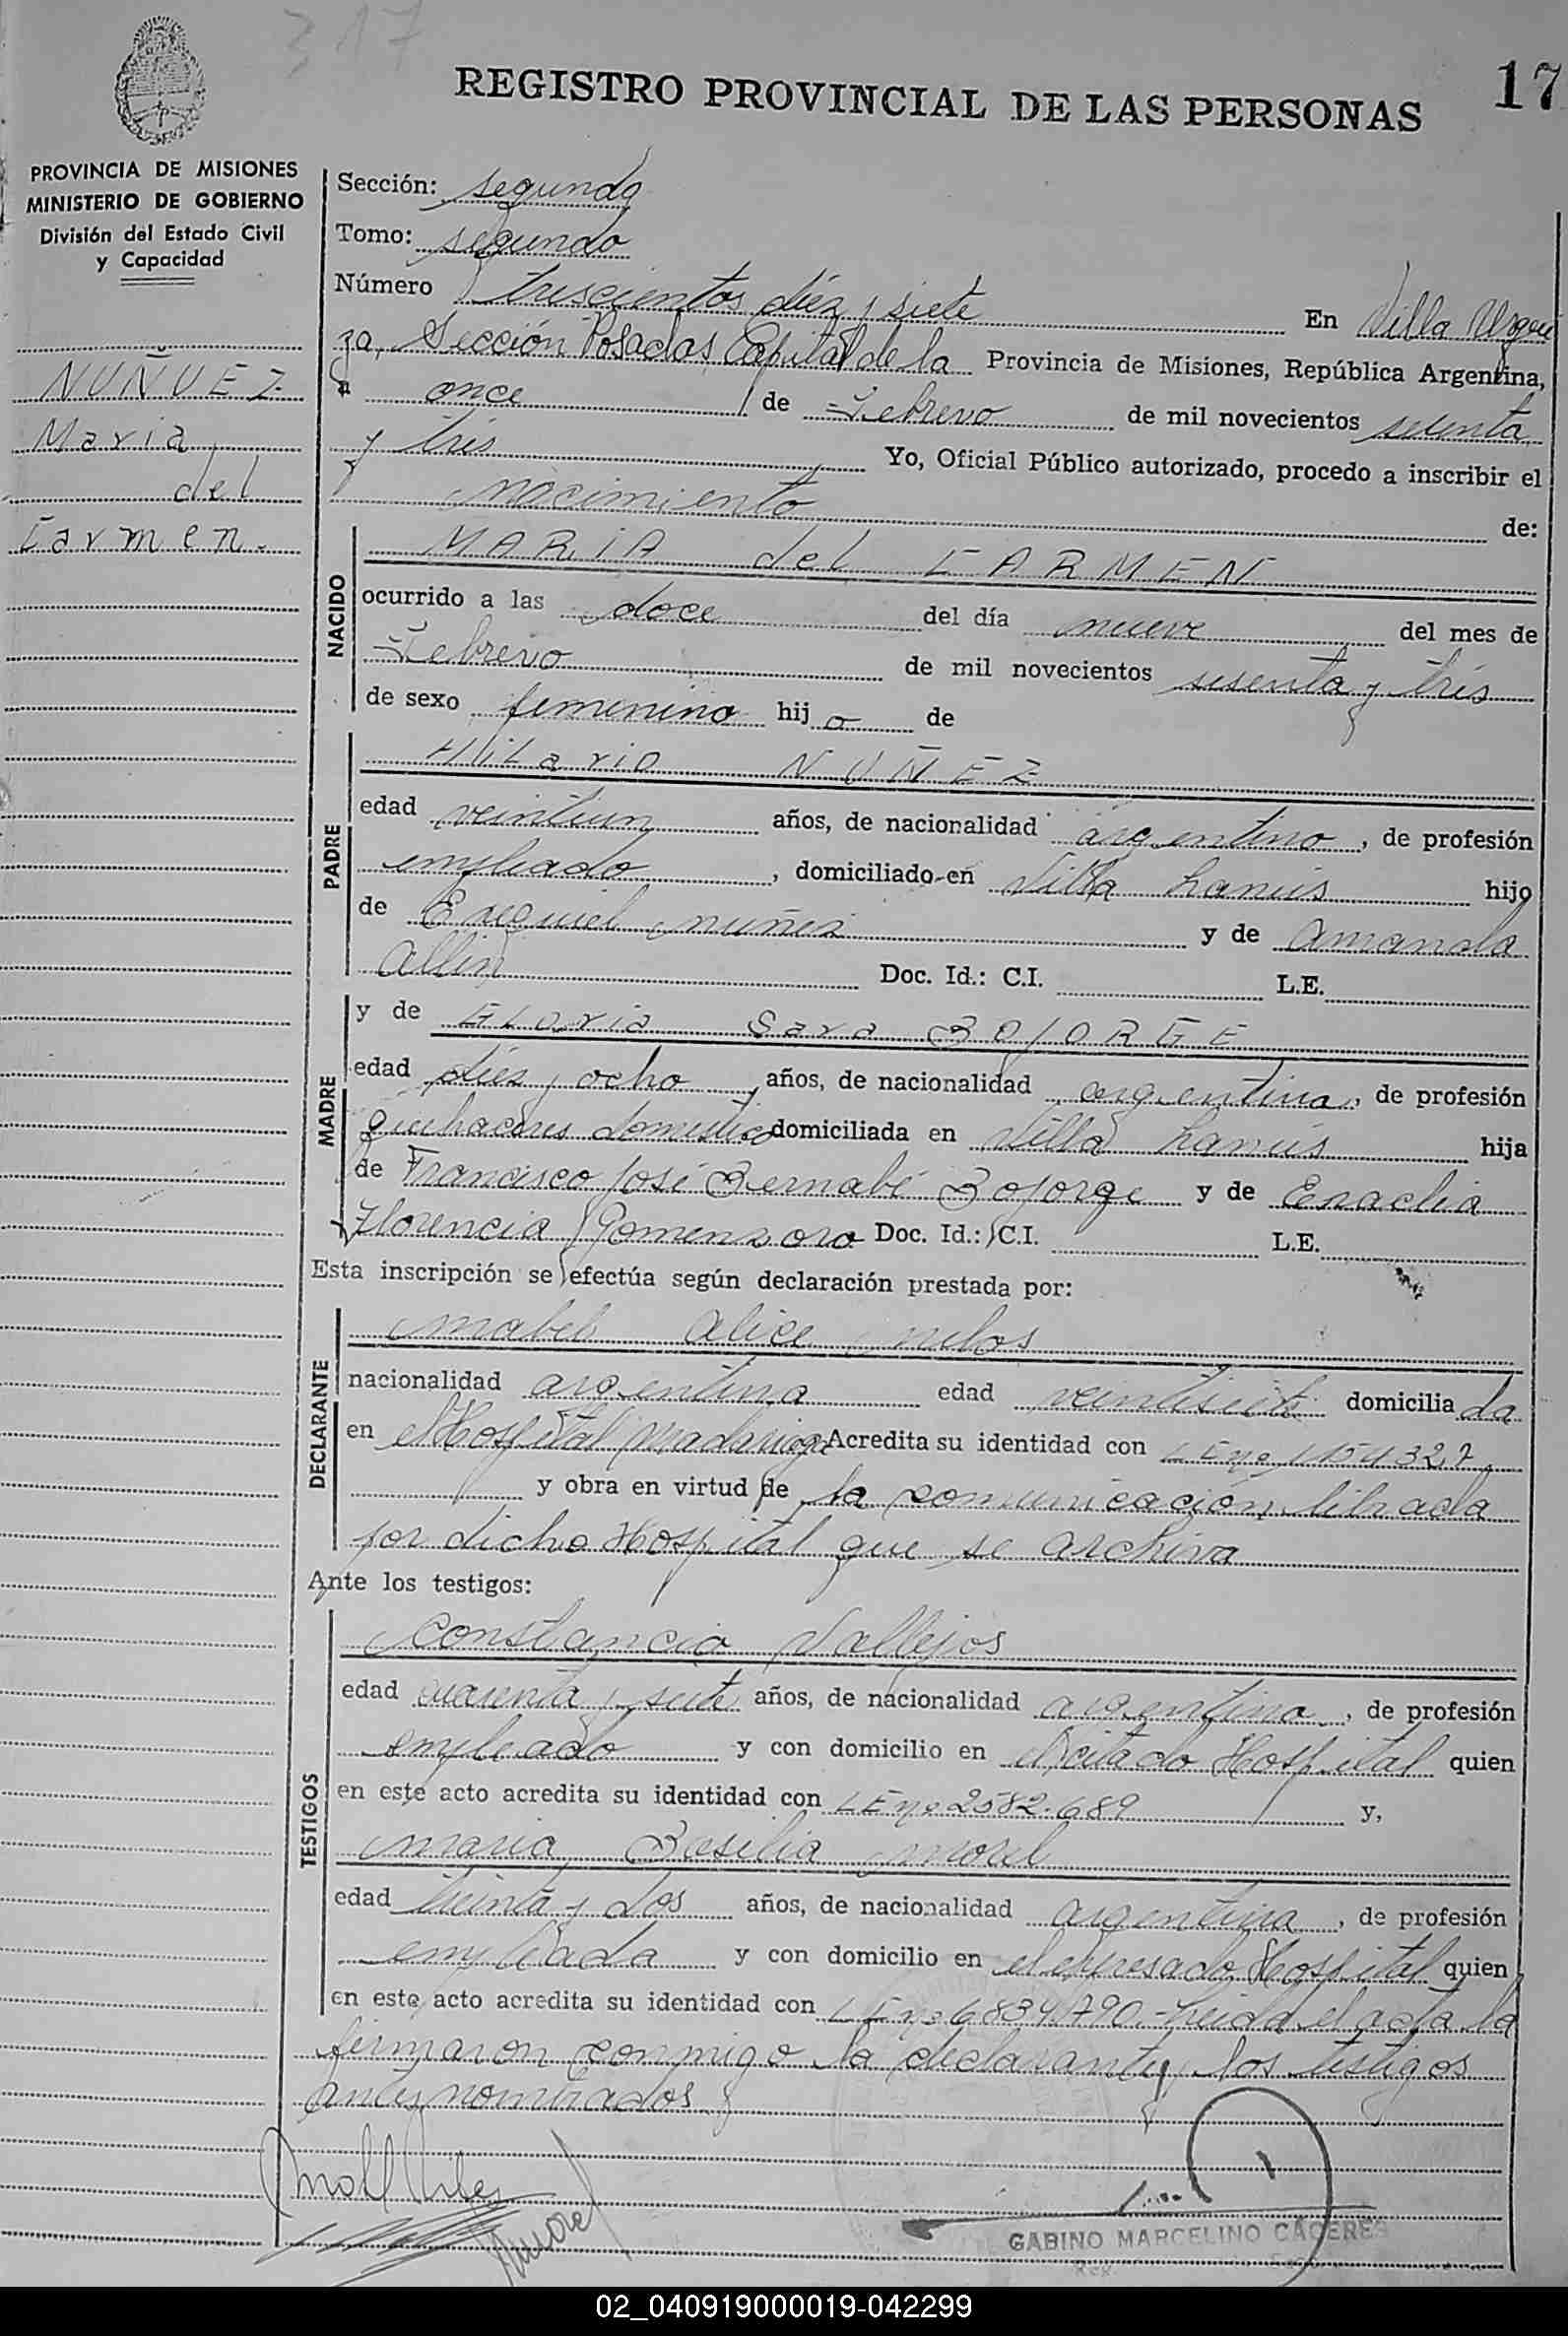 317
REGISTRO PROVINCIAL DE LAS PERSONAS
17
PROVINCIA DE MISIONES
MINISTERIO DE GOBIERNO
División del Estado Civil
y Capacidad
NUÑUEZ
Maria
del
Carmen.
Sección: segunda
Tomo: segundo
Número trescientos diéz y siete En Villa Urqui
za, Sección Posadas, Capital de la Provincia de Misiones, República Argentina,
a once de Febrero de mil novecientos
y trés Yo, Oficial Público autorizado, procedo a inscribir el
nacimiento de:
NACIDO
MARIA del CARMEN
ocurrido a las doce del día nueve del mes de
Febrero de mil novecientos sesenta y trés
de sexo femenino hij a de
PADRE
Hilario NUÑEZ
edad veintiun años, de nacionalidad argentino, de profesión
empleado, domiciliado en Villa Lanús hijo
de Exequiel nuñez y de Amanda
Allin Doc. Id.: C.I. L.E.
MADRE
y de Gloria Sara BOJORGE
edad diéz y ocho años, de nacionalidad argentina, de profesión
quehaceres domestico domiciliada en Villa Lanús hija
de Francisco José Bernabé Bojorge y de Eraclia
Florencia Gomenzoro Doc. Id.: C.I. L.E.
Esta inscripción se efectúa según declaración prestada por:
DECLARANTE
Mabel Alice
nacionalidad argentina edad veintisiete domicilia da
en el Hospital Madariaga Acredita su identidad con LE nº
y obra en virtud de la comunicación librada
por dicho Hospital que se archiva
Ante los testigos:
TESTIGOS
Constancio Vallejos
edad cuarenta y siete años, de nacionalidad argentina, de profesión
empleado y con domicilio en el citado Hospital quien
en este acto acredita su identidad con LE nº 2582.689 y,
maria Basilia morel
edad treinta y dos años, de nacionalidad argentina, de profesión
empleada y con domicilio en el expresado Hospital quien
en este acto acredita su identidad con LE nº 6834.790.- Leida el acta la
firmaron conmigo la declarante y los testigos
antes nombrados
Morel
GABINO MARCELINO CACERES
02_040919000019-042299